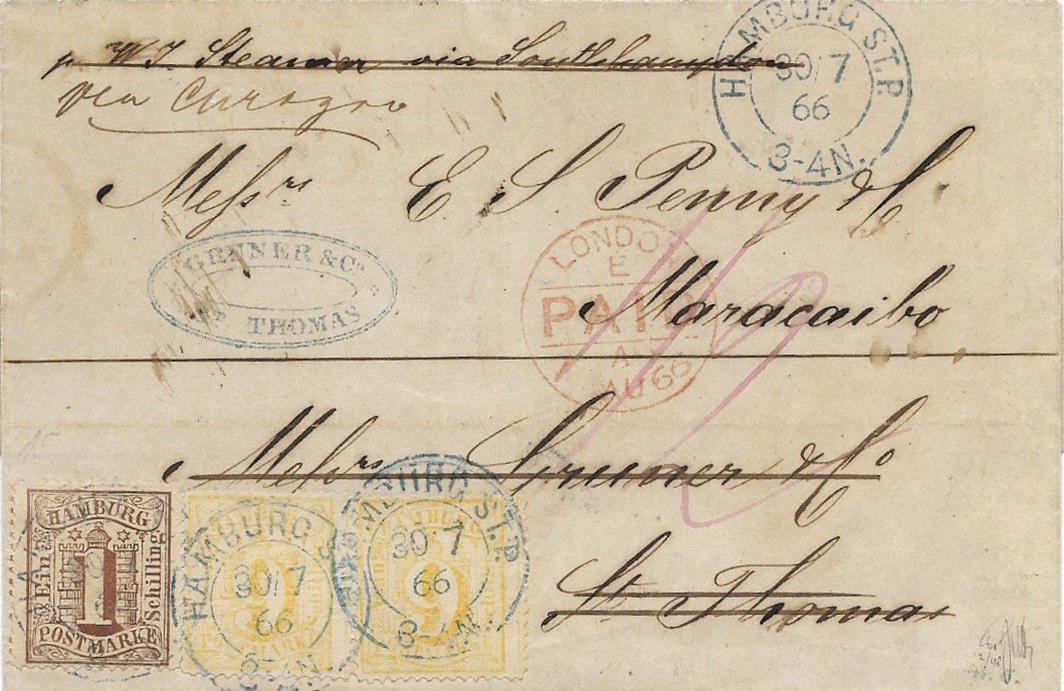 HAMBURG ST.P.
30/7
66
3-4N.
pr W.I. Steamer via Southhampton
via Curaçao
Messrs E. S. Penny & Co
GRUNER & Co
THOMAS
LONDON
E
PAID
A
AU 66
Maracaibo
Messrs Gruner & Co
St. Thomas
HAMBURG
Ein
1
Schilling
POSTMARKE
HAMBURG
9
POSTMARKE
HAMBURG S
30/7
66
HAMBURG
9
HAMBURG ST.P.
30 7
66
3-4N.